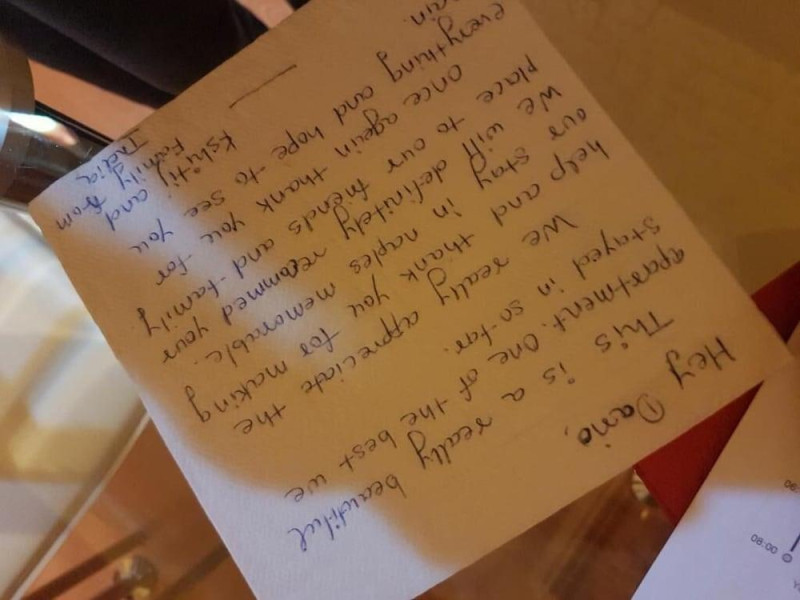 Hey Dario,
This is a really beautiful
apartment. One of the best we
stayed in so far.
We really appreciate the
help and thank you for making
our stay in naples memorable.
We will definitely recommed your
place to our friends and family
once again thank you for
everything and hope to see you
ain.
Kshitij
Family and from
India
08:00